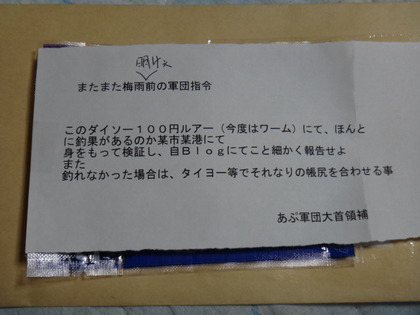 明けえ
またまた梅雨前の軍団指令
このダイソー100円ルアー（今度はワーム）にて、ほんと
に釣果があるのか某市某港にて
身をもって検証し、自Ｂｌｏｇにてこと細かく報告せよ
また
釣れなかった場合は、タイヨー等でそれなりの帳尻を合わせる事
あぶ軍団大首領補